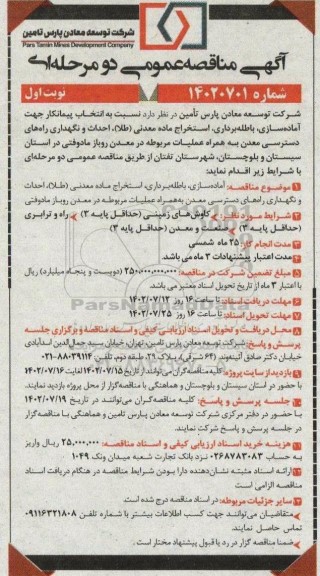 شرکت توسعه معادن پارس تامین
Pars Tamin Mines Development Company
آگهی مناقصه‌عمومی دو مرحله‌ای
شماره ۱۴۰۲۰۷۰۱ نوبت اول
شرکت توسعه معادن پارس تأمین در نظر دارد نسبت به انتخاب پیمانکار جهت
آماده‌سازی، باطله‌برداری، استخراج ماده معدنی (طلا)، احداث و نگهداری راه‌های
دسترسی معدن به همراه عملیات مربوطه در معدن روباز مادوفتی در استان
سیستان و بلوچستان، شهرستان تفتان از طریق مناقصه عمومی دو مرحله‌ای
با شرایط زیر اقدام نماید:
۱ موضوع مناقصه: آماده‌سازی، باطله‌برداری، استخراج ماده معدنی (طلا)، احداث
و نگهداری راه‌های دسترسی معدن به‌همراه عملیات مربوطه در معدن روباز مادوفتی
۲ شرایط مورد نظر: کاوش‌های زمینی (حداقل پایه ۳) راه و ترابری
(حداقل پایه ۳) صنعت و معدن (حداقل پایه ۳)
۳ مدت انجام کار: ۲۵ ماه شمسی
۴ مدت اعتبار پیشنهادات ۳ ماه می‌باشد.
۵ مبلغ تضمین شرکت در مناقصه: ۲۵۰،۰۰۰،۰۰۰،۰۰۰ (دویست و پنجاه میلیارد) ریال
با اعتبار ۳ ماه از تاریخ تحویل اسناد معتبر می باشد.
۶ مهلت دریافت اسناد: تا ساعت ۱۶ روز ۱۴۰۲/۰۷/۱۲
۷ مهلت تحویل اسناد: تا ساعت ۱۶ روز ۱۴۰۲/۰۷/۲۵
۸ محل دریافت و تحویل اسناد ارزیابی کیفی و اسناد مناقصه و برگزاری جلسه
پرسش و پاسخ: شرکت توسعه معادن پارس تامین، تهران، خیابان سید جمال‌الدین اسدآبادی
خیابان دکتر صادق آئینه‌وند (۶۴ شرقی)، پلاک ۲۹، طبقه دوم، تلفن: ۸۸۰۳۹۱۱۴-۰۲۱
۹ بازدید از سایت پروژه: کلیه مناقصه‌گران می‌توانند از تاریخ ۱۴۰۲/۰۷/۱۵ لغایت ۱۴۰۲/۰۷/۱۶
با حضور در استان سیستان و بلوچستان و هماهنگی با مناقصه‌گزار از محل پروژه بازدید نمایند.
۱۰ جلسه پرسش و پاسخ: کلیه مناقصه‌گران می‌توانند در تاریخ ۱۴۰۲/۰۷/۱۹
با حضور در دفتر مرکزی شرکت توسعه معادن پارس تامین و هماهنگی با مناقصه گزار
در جلسه پرسش و پاسخ شرکت نمایند.
۱۱ هزینه خرید اسناد ارزیابی کیفی و اسناد مناقصه: ۲۵،۰۰۰،۰۰۰ ریال واریز
به حساب ۰۲۶۸۷۸۳۰۸۳ نزد بانک تجارت شعبه میدان ونک ۱۰۴۹
۱۲ ارائه اسناد مثبته نشان‌دهنده دارا بودن شرایط مناقصه در هنگام دریافت اسناد
مناقصه الزامی است
۱۳ سایر جزئیات مربوطه: در اسناد مناقصه درج شده است.
متقاضیان می‌توانند جهت کسب اطلاعات بیشتر با شماره تلفن ۰۹۱۱۶۳۲۱۸۰۸
تماس حاصل نمایند.
ضمنا مناقصه گزار در رد یا قبول پیشنهاد مختار است.